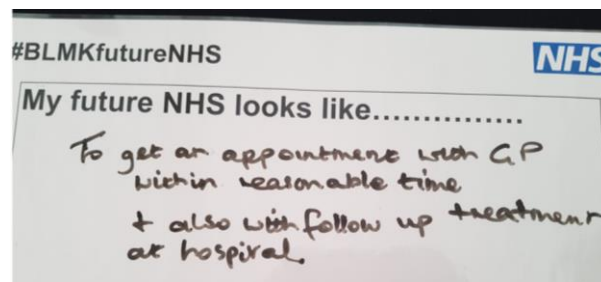 #BLMKfutureNHS
NHS
My future NHS looks like...............
To get an appointment with GP
within reasonable time
+ also with follow up treatment
at hospital.